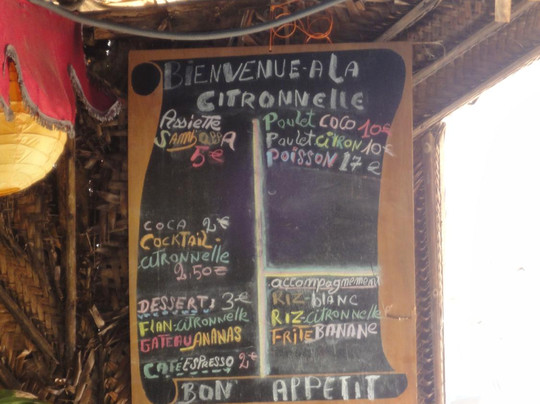 BIENVENUE-A LA
CITRONNELLE
Assiette
SAMBOSSA
5€
COCA 2€
COCKTAIL-
citronnelle
2.50€
DESSERTS 3€
FLAN-citronnelle
GATEAU ANANAS
CAFÉ ESPRESSO 2€
Poulet COCO 10€
Poulet CITRON 10€
POISSON 17€
accompagnement
RIZ-blanc
RIZ-citronnelle
FRITE BANANE
BON APPETIT